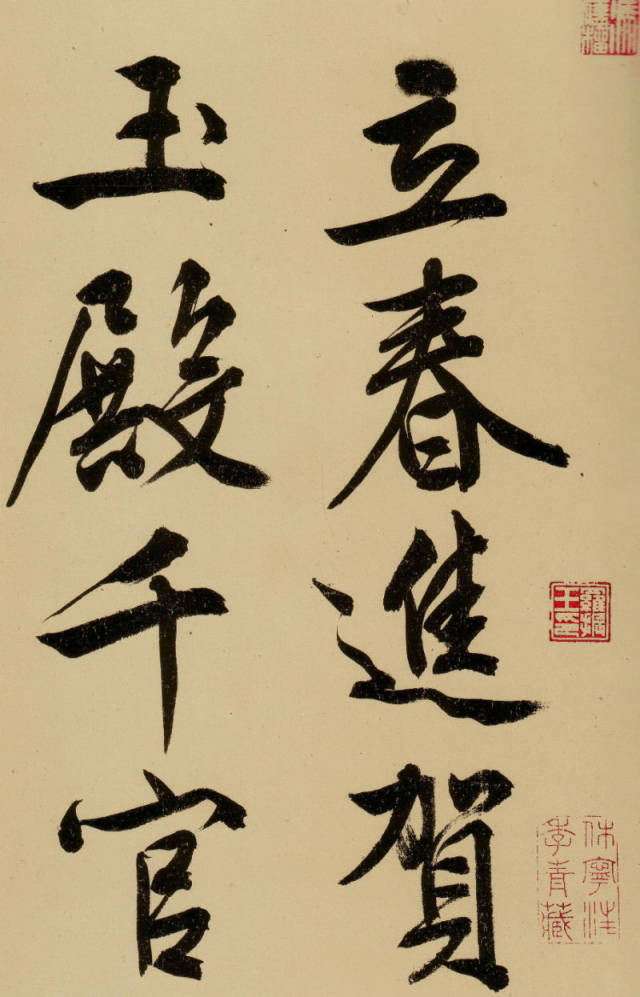 立春進賀
玉殿千官
休寧汪
季青藏